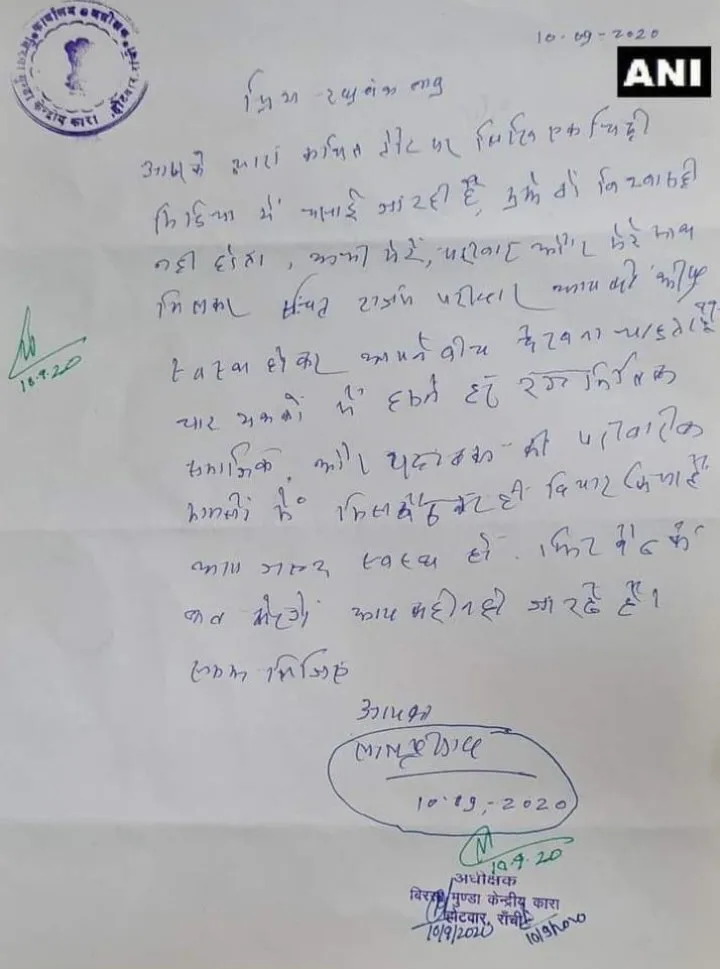 10-09-2020
ANI
कार्यालय अधीक्षक
केन्द्रीय कारा होटवार
प्रिय रघुवंश बाबू
आपके द्वारा कथित तौर पर लिखित एक चिट्ठी
मिडिया में चलाई जा रही है, मुझे तो विश्वास ही
नहीं होता, अभी मेरे, परिवार और मेरे साथ
मिलकर राजद परिवार आपको शीघ्र
स्वस्थ होकर अपने बीच देखना चाहता है
चार दशकों में हमने हर
समाजिक, और यहाँ तक की परिवारिक
मामलों में मिल बैठकर ही विचार किया है
आप जल्द स्वस्थ हो. फिर बैठ के
बात करेंगे आप कही नहीं जा रहे है।
समझ लिजिए
आपका
लालू प्रसाद
10.09.-2020
10.9.20
10.9.20
अधीक्षक
बिरसा मुण्डा केन्द्रीय कारा
होटवार, राँची
10/9/2020
10/9/2020